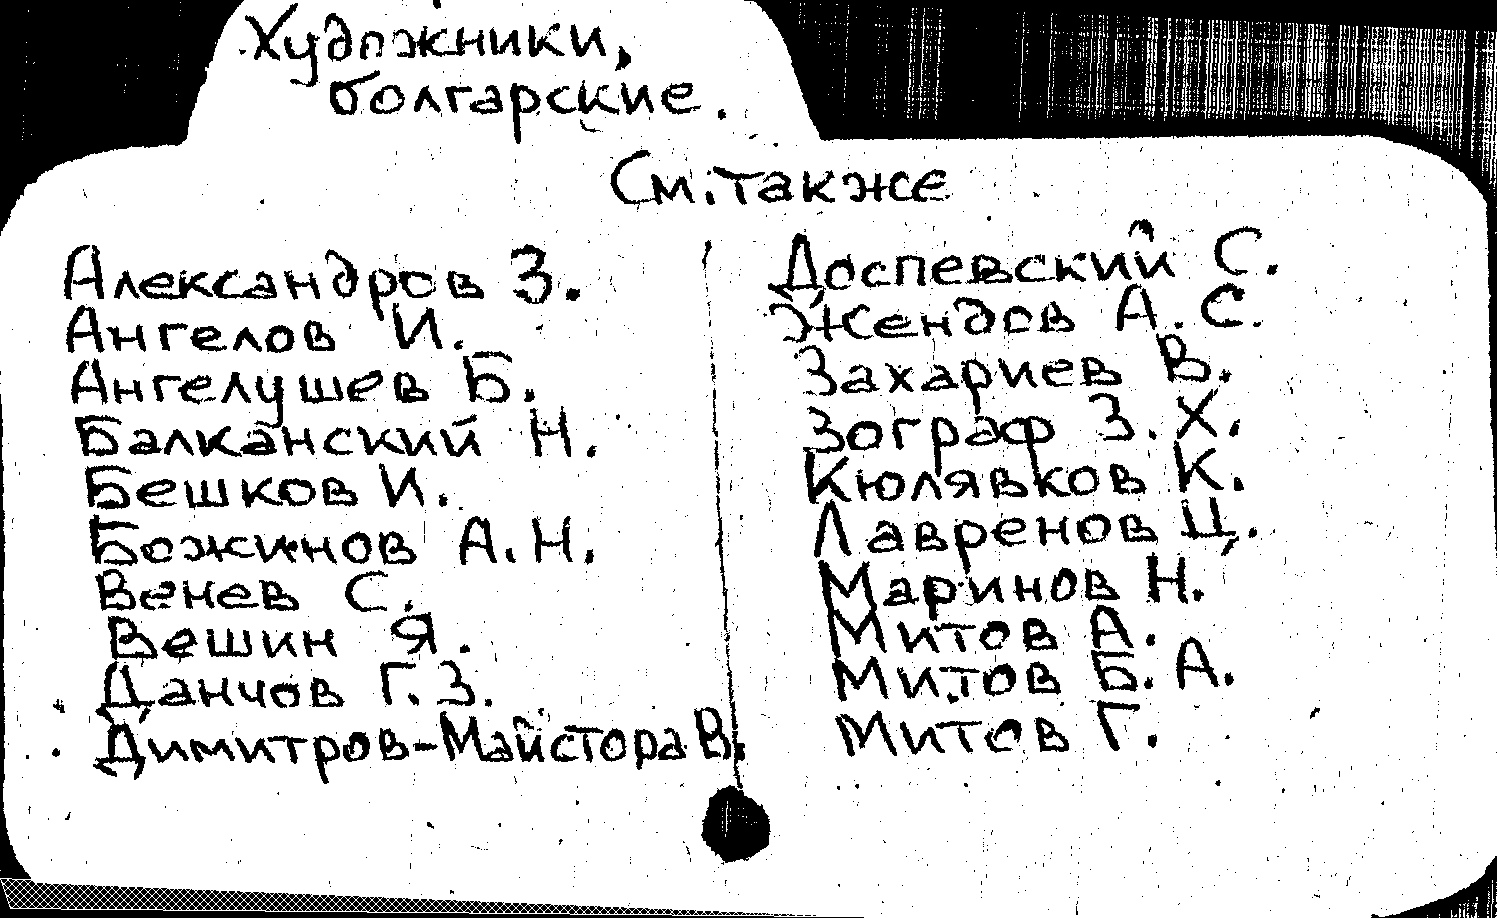 Художники,
болгарские.
См. также
Александров З.
Ангелов И.
Ангелушев Б.
Балканский Н.
Бешков И.
Божинов А. Н.
Венев С.
Вешин Я.
Данчов Г. З.
Димитров-Майстора В.
Доспевский С.
Жендов А. С.
Захариев В.
Зограф З. Х.
Кюлявков К.
Лавренов Ц.
Маринов Н.
Митов А.
Митов Б. А.
Митов Г.